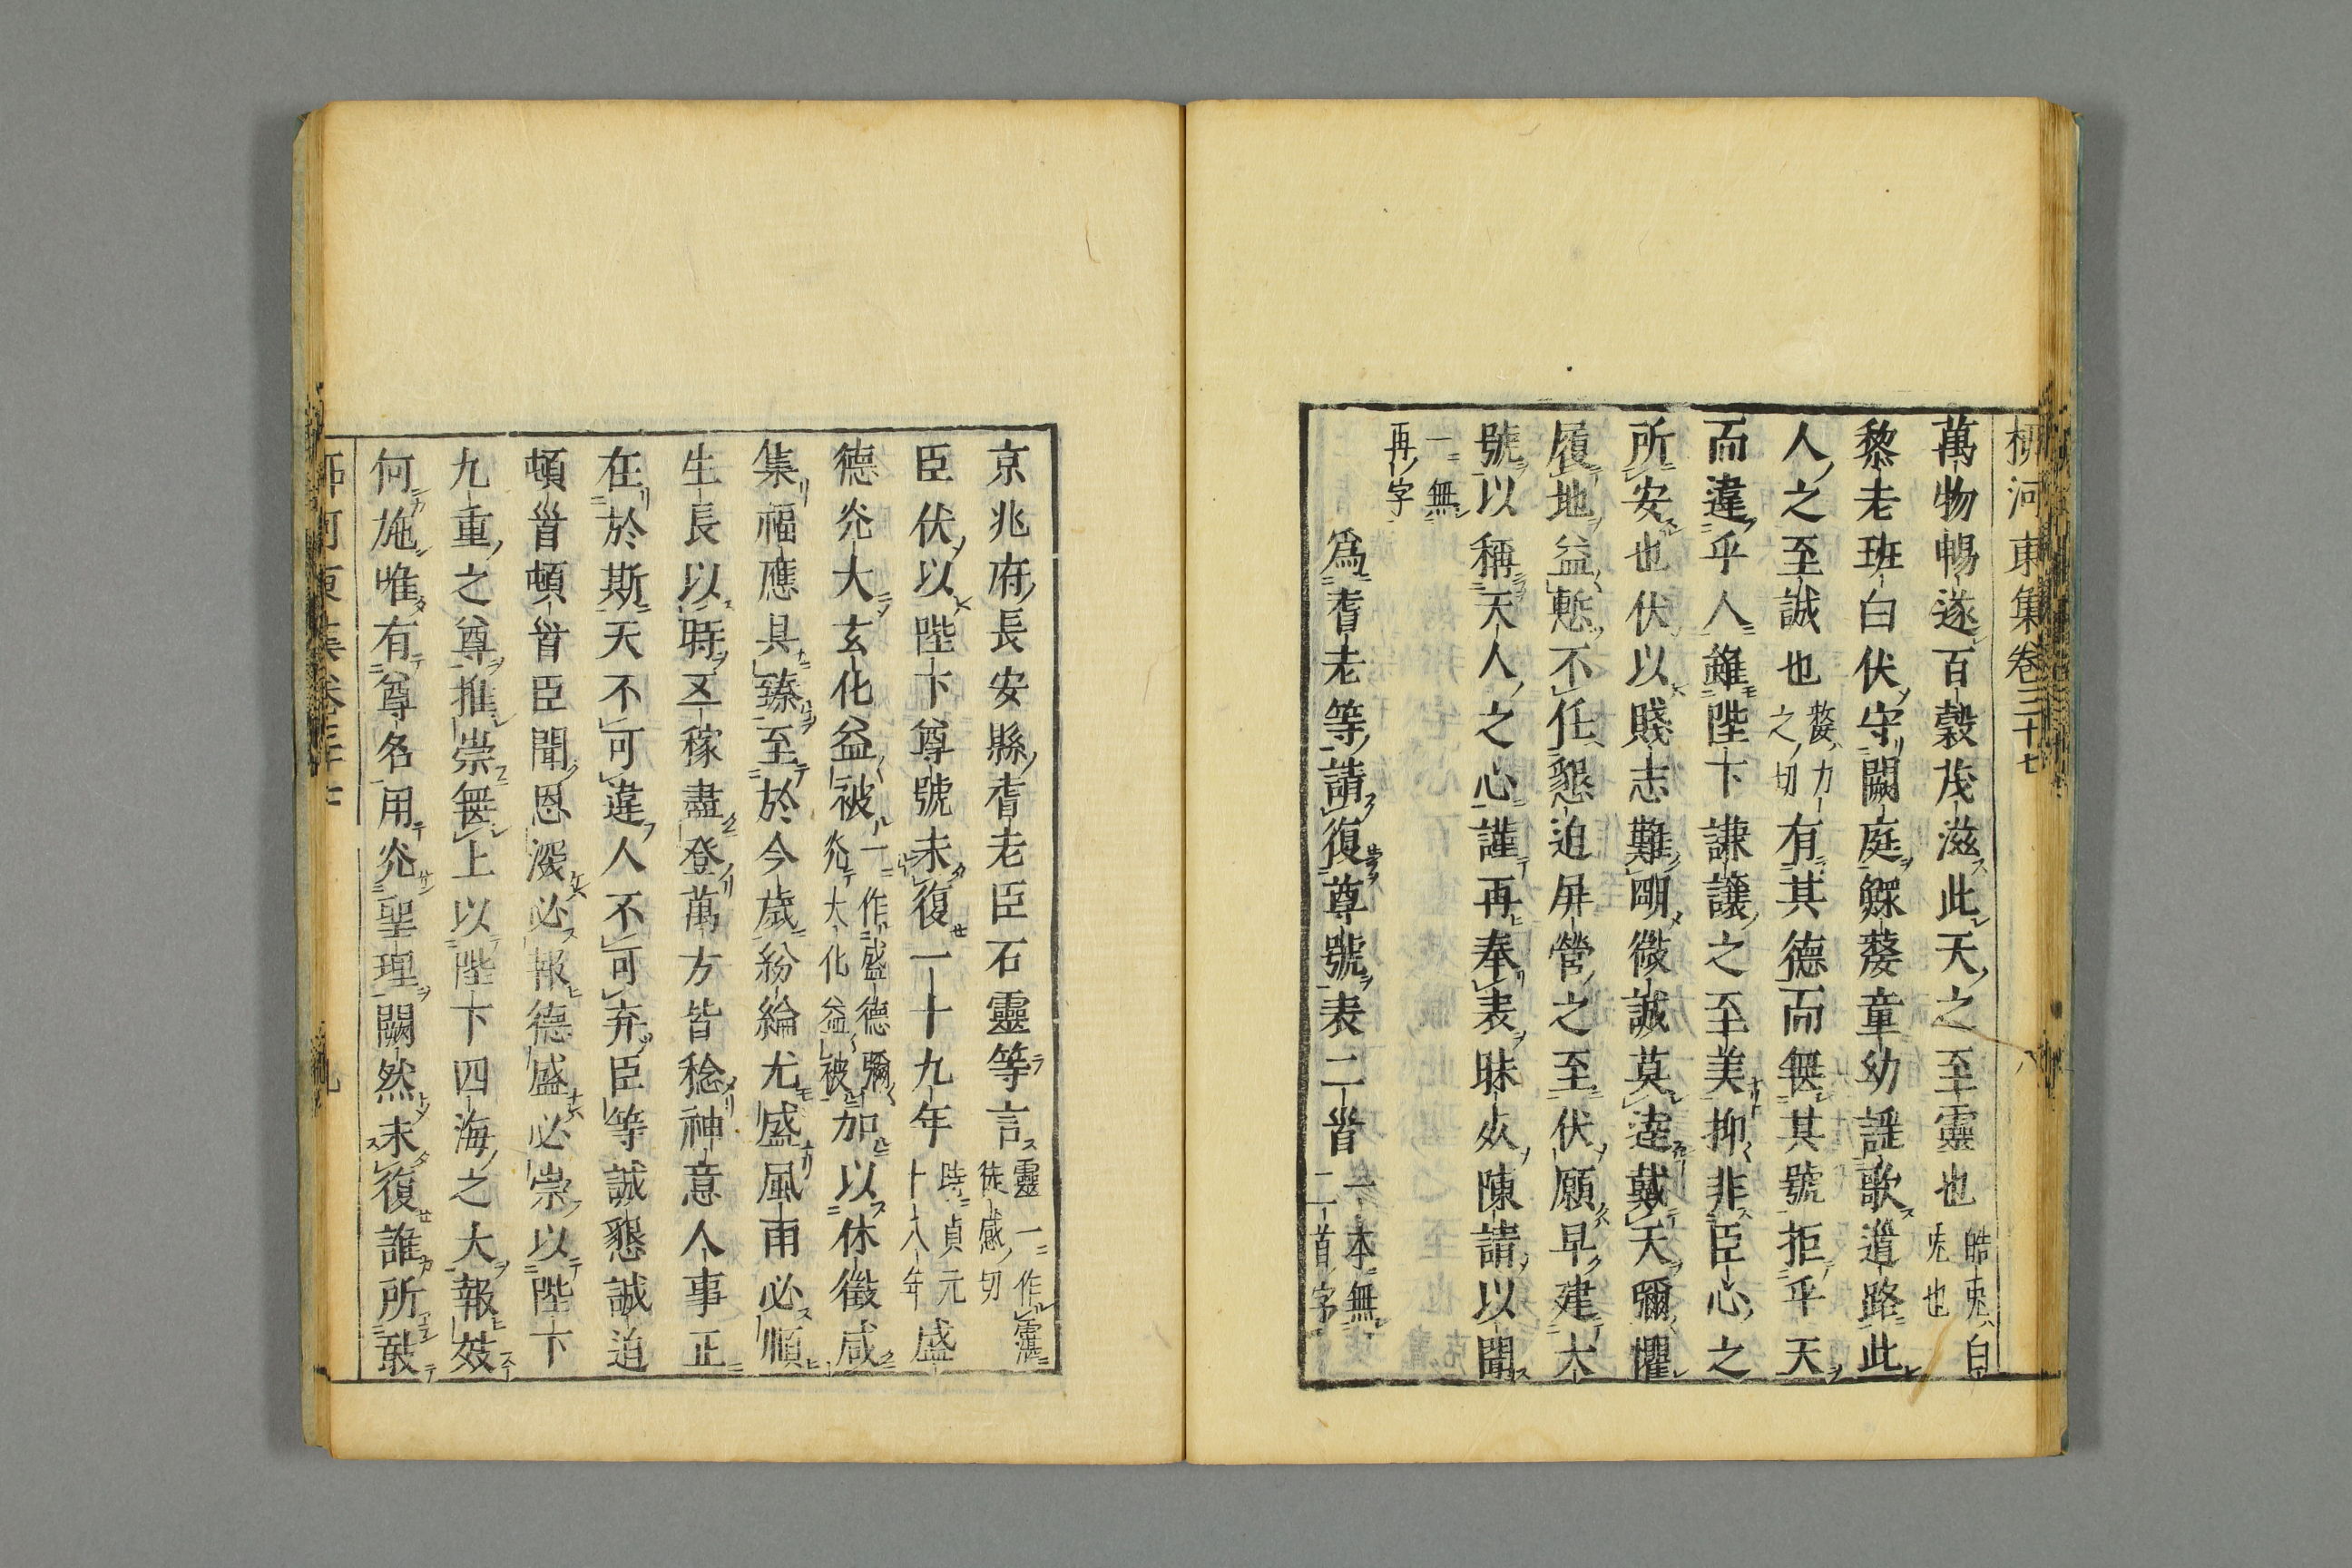 柳河東集卷三十七 八
萬物暢遂百穀茂滋此天之至靈也皓兎白兎也
黎老班白伏守闕庭鰥嫠童幼謡歌道路此
人之至誠也嫠力之切有其德而無其號拒乎天
而違乎人雖陛下謙讓之至美抑非臣心之
所安也伏以賤志難明微誠莫達戴天彌懼
履地益慙不任懇迫屏營之至伏願早建大
號以稱天人之心謹再奉表昧死陳請以聞
一無再字
爲耆老等請復尊號表二首一本無二首字
京兆府長安縣耆老臣石靈等言靈一作靈湛徒感切
臣伏以陛下尊號未復一十九年時貞元十八年盛
德光大玄化益被一作盛德彌光大化益被加以休徵咸
集福應具臻至於今歳紛綸尤盛風雨必順
生長以時五稼盡登萬方皆稔神意人事正
在於斯天不可違人不可弃臣等誠懇誠迫
頓首頓首臣聞恩深必報德盛必崇以陛下
九重之尊推崇無上以陛下四海之大報效
何施唯有尊名用光聖理闕然未復誰所敢